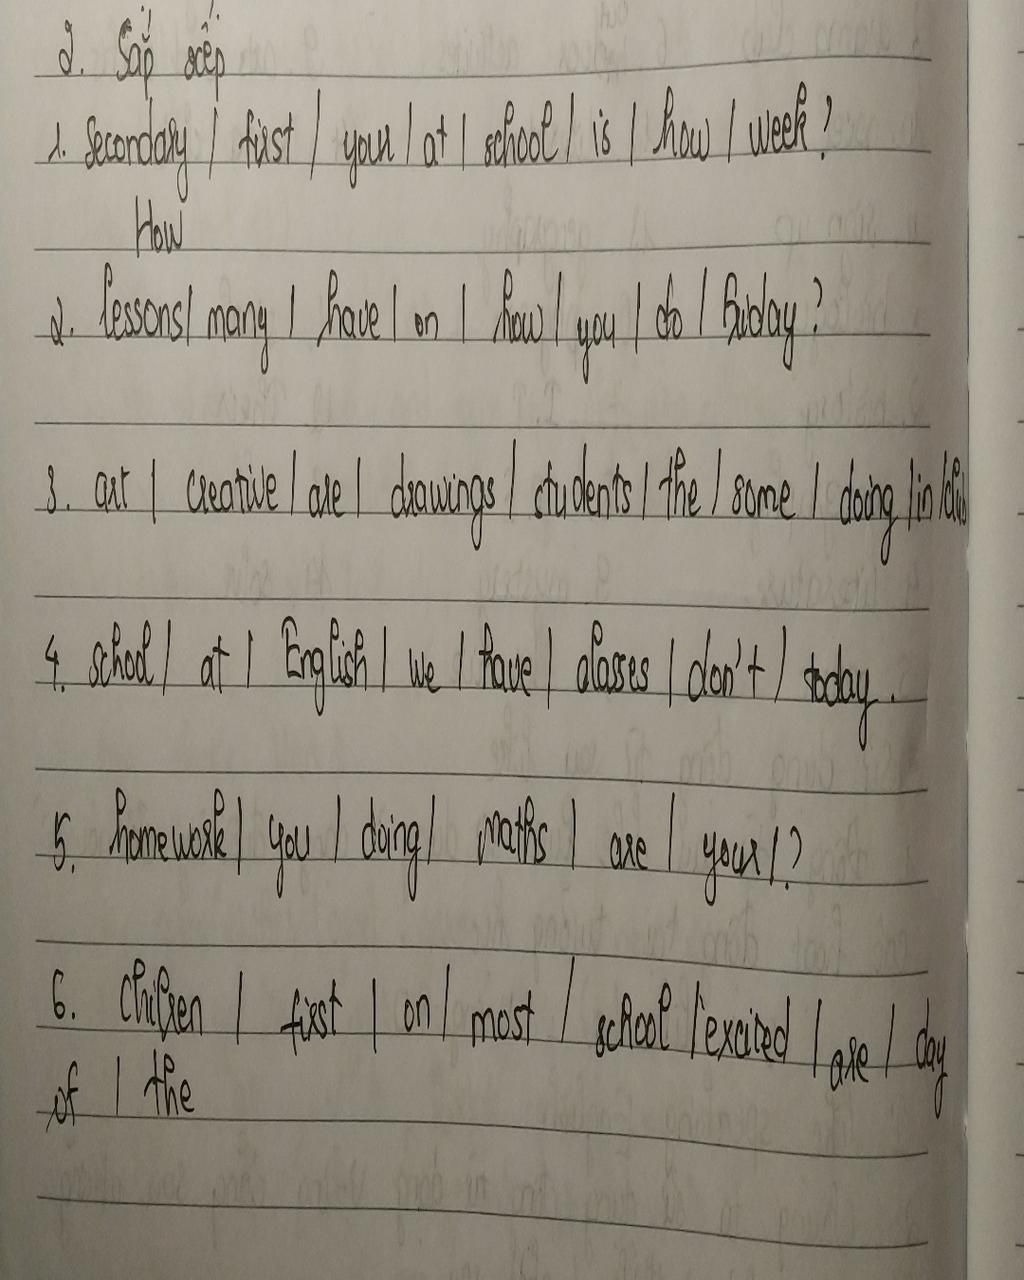 2. Sắp xếp
1. Secondary / first / your / at / school / is / how / week?
How
2. lessons / many / have / on / how / you / do / Friday?
3. art / creative / are / drawings / students / the / some / doing / in /
4. school / at / English / we / have / classes / don't / today.
5. homework / you / doing / maths / are / your / ?
6. Children / first / on / most / school / excited / are / day
of / the